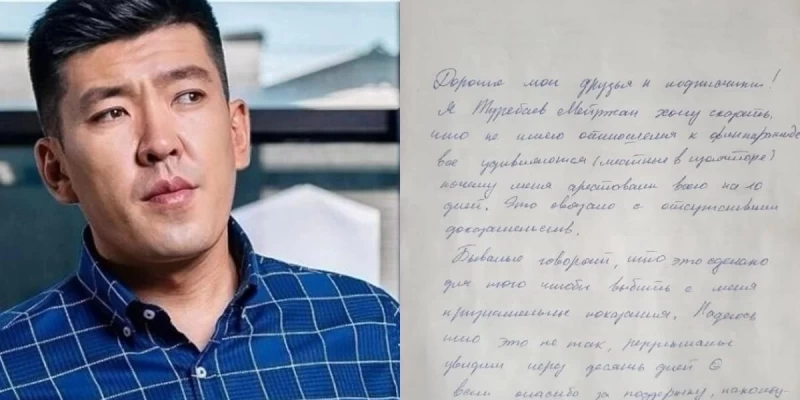 Дорогие мои друзья и подписчики!
Я Туребаев Мейржан хочу сказать,
что не имею отношения к финпирамиде
все удивляются (местные в изоляторе)
почему меня арестовали всего на 10
дней. Это связано с отсутствием
доказательств.
Бывалые говорят, что это сделано
для того чтобы выбить с меня
признательные показания. Надеюсь
что это не так,
увидим через десять дней
всем спасибо за поддержку,